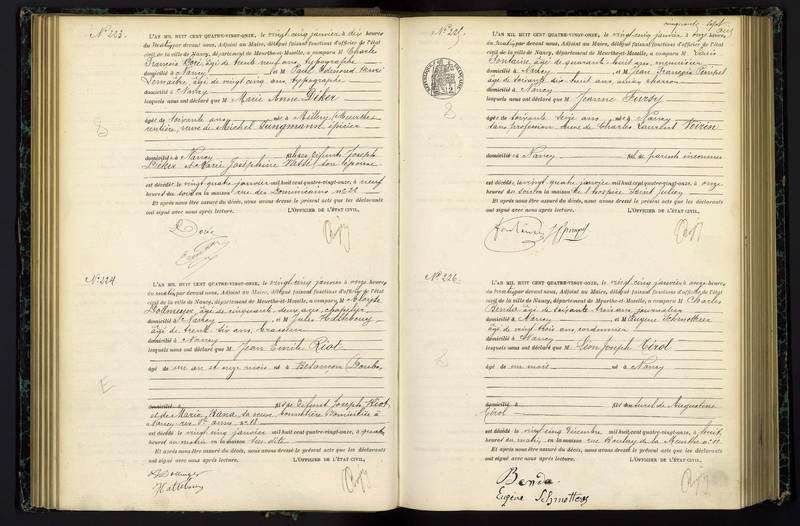 N° 223.
L'AN MIL HUIT CENT QUATRE-VINGT-ONZE, le vingt cinq janvier à dix heures
du matin, par devant nous, Adjoint au Maire, délégué faisant fonctions d'officier de l'état
civil de la ville de Nancy, département de Meurthe-et-Moselle, a comparu M. Charles
François Doré, âgé de trente neuf ans, typographe
domicilié à Nancy et M Paul Edmond Henri
Lemaire, âgé de vingt cinq ans, typographe
domicilié à Nancy
lesquels nous ont déclaré que M Marie Anne Déker
âgée de soixante ans né à Millery (Meurthe)
rentière, veuve de Michel Jungmann, épicier
domicilié à Nancy fille des défunts Joseph
Déker et Marie Joséphine son épouse
est décédée le vingt quatre janvier mil huit cent quatre-vingt-onze, à neuf
heures du soir en la maison rue des Dominicains n° 22
Et après nous être assuré du décès, nous avons dressé le présent acte que les déclarants
ont signé avec nous après lecture. L'OFFICIER DE L'ÉTAT CIVIL,
Doré
N° 224
L'AN MIL HUIT CENT QUATRE-VINGT-ONZE, le vingt cinq janvier à onze heures
du matin, par devant nous, Adjoint au Maire, délégué faisant fonctions d'officier de l'état
civil de la ville de Nancy, département de Meurthe-et-Moselle, a comparu M. Aloyse
Dollmeyer, âgé de cinquante deux ans, chapelier
domicilié à Nancy et M Jules
âgé de trente six ans, brasseur
domicilié à Nancy
lesquels nous ont déclaré que M Jean Emile Riot
âgé de un an et onze mois né à Besançon (Doubs)
domicilié à fils de défunt Joseph Riot,
et de Maria Hana, sa veuve domiciliée à
Nancy, rue n° 11
est décédé le vingt cinq janvier mil huit cent quatre-vingt-onze, à quatre
heures du matin en la maison sus dite
Et après nous être assuré du décès, nous avons dressé le présent acte que les déclarants
ont signé avec nous après lecture. L'OFFICIER DE L'ÉTAT CIVIL,
E
cinquante sept
N° 225.
L'AN MIL HUIT CENT QUATRE-VINGT-ONZE, le vingt cinq janvier à onze heures
du matin, par devant nous, Adjoint au Maire, délégué faisant fonctions d'officier de l'état
civil de la ville de Nancy, département de Meurthe-et-Moselle, a comparu M. Louis
Fontaine, âgé de quarante huit ans, menuisier
domicilié à Nancy et M Jean François
âgé de soixante dix huit ans, ancien charron
domicilié à Nancy
lesquels nous ont déclaré que M Jeanne Fursy
âgée de soixante seize ans née à Nancy
sans profession, veuve de Charles Laurent Voirin
domicilié à Nancy fille de parents inconnus
est décédée le vingt quatre janvier mil huit cent quatre-vingt-onze, à onze
heures du soir en la maison de l'hospice Saint Julien
Et après nous être assuré du décès, nous avons dressé le présent acte que les déclarants
ont signé avec nous après lecture. L'OFFICIER DE L'ÉTAT CIVIL,
N° 226.
L'AN MIL HUIT CENT QUATRE-VINGT-ONZE, le vingt cinq janvier à onze heures
du matin, par devant nous, Adjoint au Maire, délégué faisant fonctions d'officier de l'état
civil de la ville de Nancy, département de Meurthe-et-Moselle, a comparu M. Charles
Benda, âgé de soixante trois ans, journalier
domicilié à Nancy et M Eugène Schmotterer
âgé de vingt trois ans, cordonnier
domicilié à Nancy
lesquels nous ont déclaré que M Léon Joseph Cérol
âgé de un mois né à Nancy
domicilié à fils naturel de Augustine
Cérol
est décédé le vingt cinq mil huit cent quatre-vingt-onze, à huit
heures du matin, en la maison rue Boulay de la Meurthe n° 11
Et après nous être assuré du décès, nous avons dressé le présent acte que les déclarants
ont signé avec nous après lecture. L'OFFICIER DE L'ÉTAT CIVIL,
Benda
Eugène